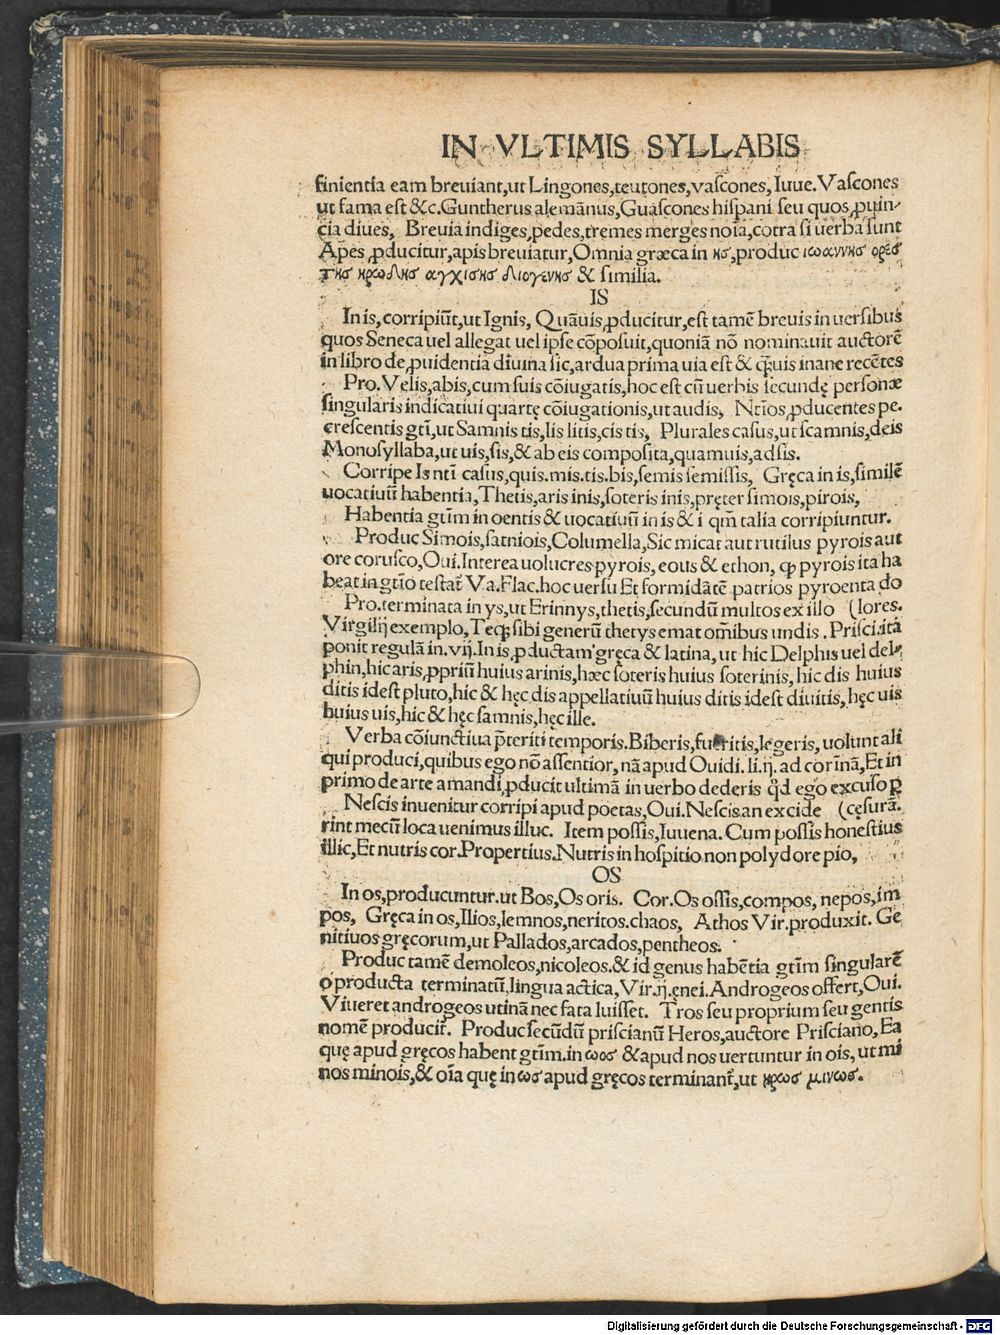 IN VLTIMIS SYLLABIS
finientia eam breuiant,ut Lingones,teutones,vaſcones, Iuue.Vaſcones
ut fama eſt &c.Guntherus alemānus,Guaſcones hiſpani ſeu quos ꝓuin⸗
cia diues, Breuia indiges,pedes,tremes merges noīa,cōtra ſi uerba ſunt
Ap̄es ꝓducitur,apis breuiatur,Omnia græca in ησ,produc ιωαννησ ορέσ
τησ ηρωδησ αγχισησ διογενησ & ſimilia.
IS
In is,corripiūt,ut Ignis, Quāuis ꝓducitur,eſt tamē breuis in uerſibus
quos Seneca uel allegat uel ipſe cōpoſuit,quoniā nō nominauit auctorē
in libro de ꝓuidentia diuina ſic,ardua prima uia eſt & q̄uis inane recētes
Pro.Velis,abis,cum ſuis cōiugatis,hoc eſt cū uerbis ſecundę perſonæ
ſingularis indicatiui quartę cōiugationis,ut audis, Ntīos ꝓducentes pe.
creſcentis gtī,ut Samnis tis,lis litis,cis tis, Plurales caſus,ut ſcamnis,deis
Monoſyllaba,ut uis,ſis,& ab eis compoſita,quamuis,adſis.
Corripe Is ntī caſus,quis.mis.tis.bis,ſemis ſemiſſis, Gręca in is,ſimilē
uocatiuū habentia,Thetis,aris inis,ſoteris inis,pręter ſimois,pirois,
Habentia gtīm in oentis & uocatiuū in is & i qm̄ talia corripiuntur.
Produc Simois,ſatniois,Columella,Sic micat aut rutilus pyrois aut
ore coruſco,Oui.Interea uolucres pyrois, eous & ethon, ꝙ pyrois ita ha
beat in gtīo teſtat̄ Va.Flac.hoc uerſu Et formidātē patrios pyroenta do
Pro.terminata in ys,ut Erinnys,thetis,ſecundū multos ex illo (lores.
Virgilij exemplo,Teqꝫ ſibi generū thetys emat om̄ibus undis . Priſci.ita
ponit regulā in.vij.In is ꝓductam gręca & latina, ut hic Delphis uel del⸗
phin,hic aris ꝓpriū huius arinis,hæc ſoteris huius ſoterinis, hic dis huius
ditis ideſt pluto,hic & hęc dis appellatiuū huius ditis ideſt diuitis, hęc uis
huius uis,hic & hęc ſamnis,hęc ille.
Verba cōiunctiua p̄teriti temporis.Biberis,fueritis,legeris, uolunt ali
qui produci,quibus ego nō aſſentior, nā apud Ouidi. li.ij. ad corīnā,Et in
primo de arte amandi ꝓducit ultimā in uerbo dederis q̄d ego excuſo ꝑ
Neſcis inuenitur corripi apud poetas,Oui.Neſcis an excide (cęſurā.
rint mecū loca uenimus illuc. Item poſſis,Iuuena. Cum poſſis honeſtius
illic,Et nutris cor.Propertius.Nutris in hoſpitio non polydore pio,
OS
In os,producuntur.ut Bos,Os oris. Cor.Os oſſis,compos, nepos,im
pos, Gręca in os,Ilios,lemnos,neritos.chaos, Athos Vir.produxit. Ge
nitiuos gręcorum,ut Pallados,arcados,pentheos.
Produc tamē demoleos,nicoleos.& id genus habētia gtīm ſingularē
o producta terminatū,lingua actica, Vir.ij.ęnei.Androgeos offert,Oui.
Viueret androgeos utinā nec fata luiſſet. Tros ſeu proprium ſeu gentis
nomē producit̄. Produc ſecūdū priſcianū Heros,auctore Priſciano, Ea
quę apud gręcos habent gtīm.in ωοσ & apud nos uertuntur in ois, ut mi
nos minois,& oīa quę in ωσ apud gręcos terminant̄,ut ηρωσ μινωσ.
Digitalisierung gefördert durch die Deutsche Forschungsgemeinschaft - DFG